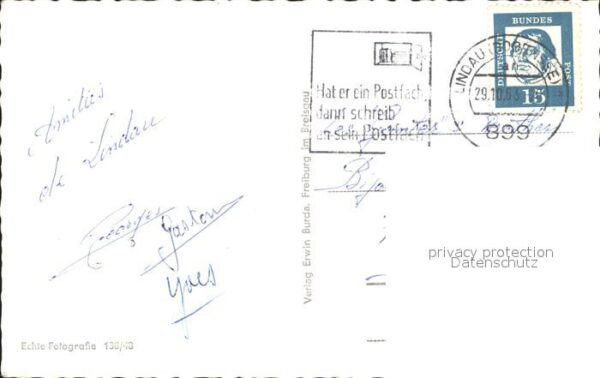 Amitiés
de Lindau
Georges
Gaston
Yves
Echte Fotografie 136/43
Verlag Erwin Burda, Freiburg im Breisgau
Hat er ein Postfach,
dann schreib
an sein Postfach
DEUTSCHE BUNDES POST
15
LINDAU (BODENSEE)
29.10.63
899
privacy protection
Datenschutz